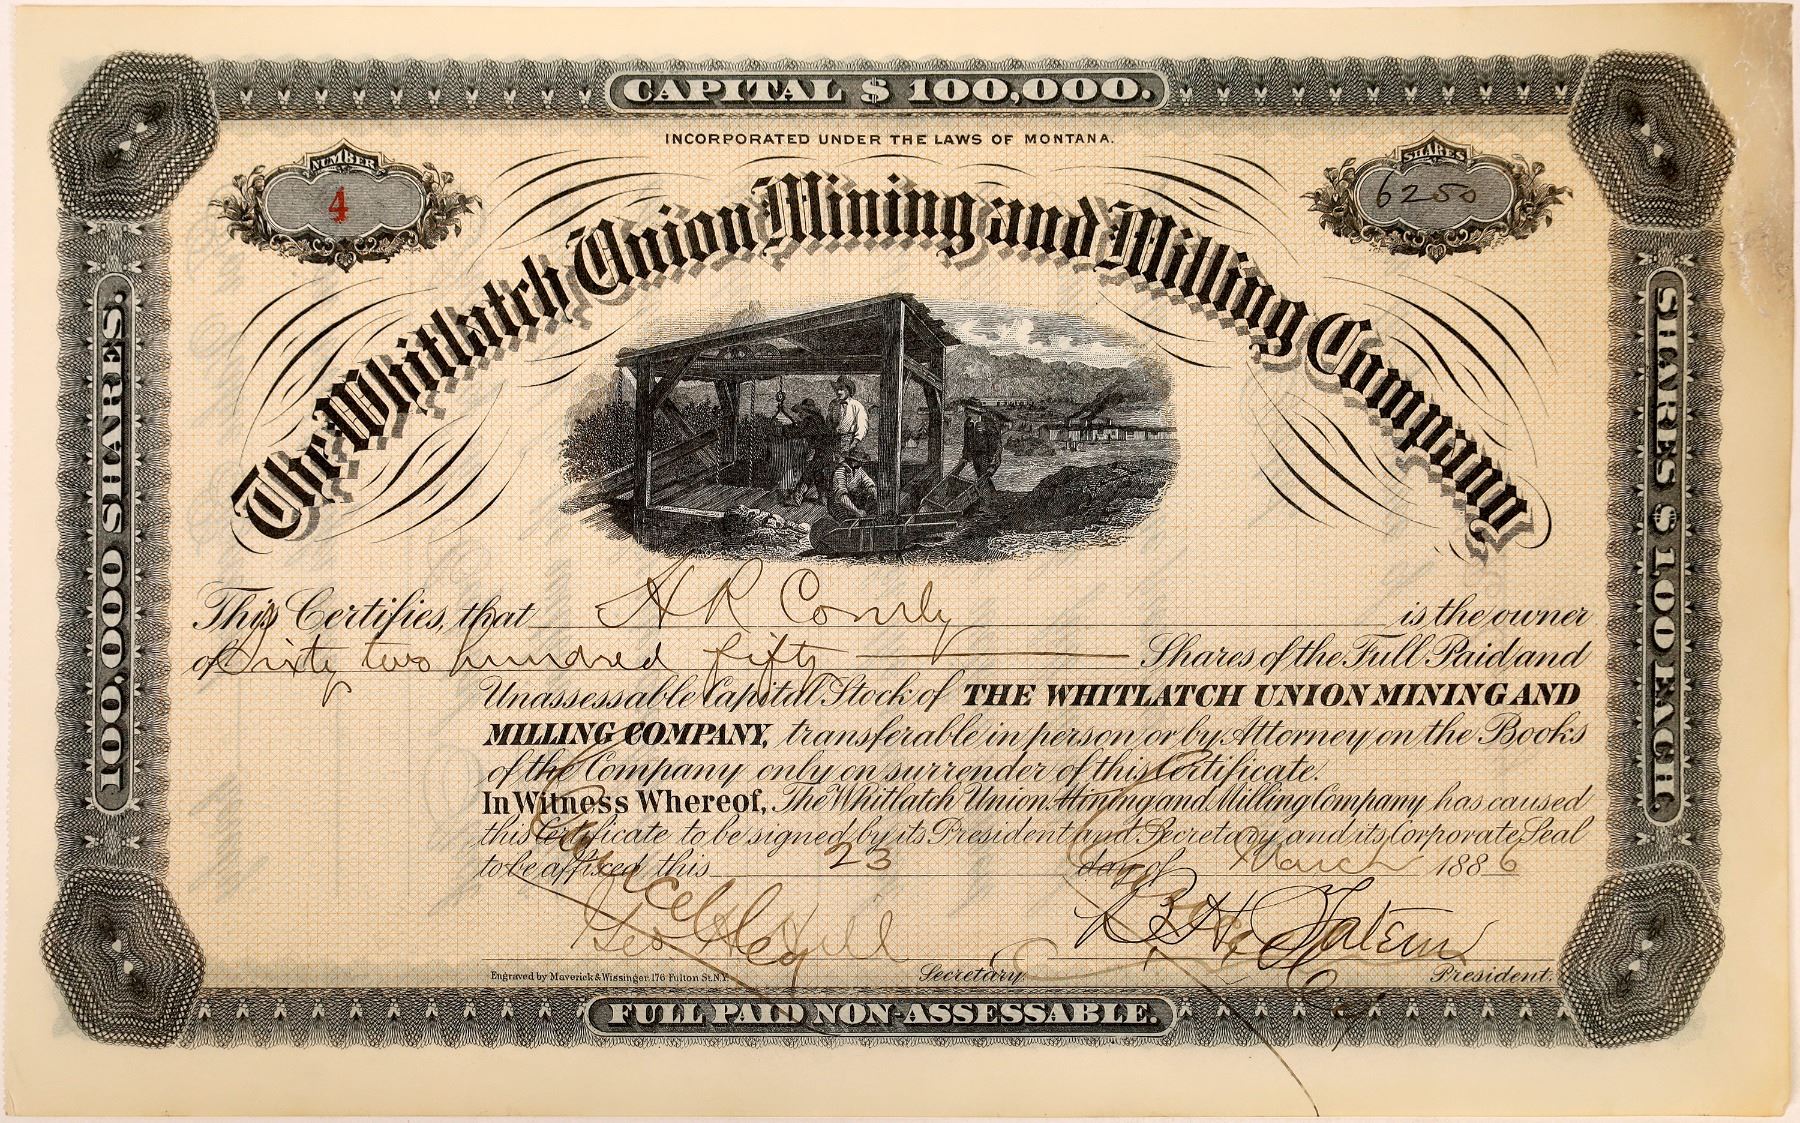 CAPITAL $ 100,000.
INCORPORATED UNDER THE LAWS OF MONTANA.
NUMBER
4
SHARES
6250
The Whitlatch Union Mining and Milling Company
100,000 SHARES.
SHARES $1.00 EACH.
This Certifies, that H R Comly is the owner
of Sixty two hundred fifty Shares of the Full Paid and
Unassessable Capital Stock of THE WHITLATCH UNION MINING AND
MILLING COMPANY, transferable in person or by Attorney on the Books
of the Company only on surrender of this Certificate.
In Witness Whereof, The Whitlatch Union Mining and Milling Company has caused
this Certificate to be signed by its President and Secretary and its Corporate Seal
to be affixed this 23 day of March 1886
Cancelled
Geo Hill
Engraved by Maverick & Wissinger. 176 Fulton St. N.Y.
Secretary.
President.
FULL PAID NON-ASSESSABLE.